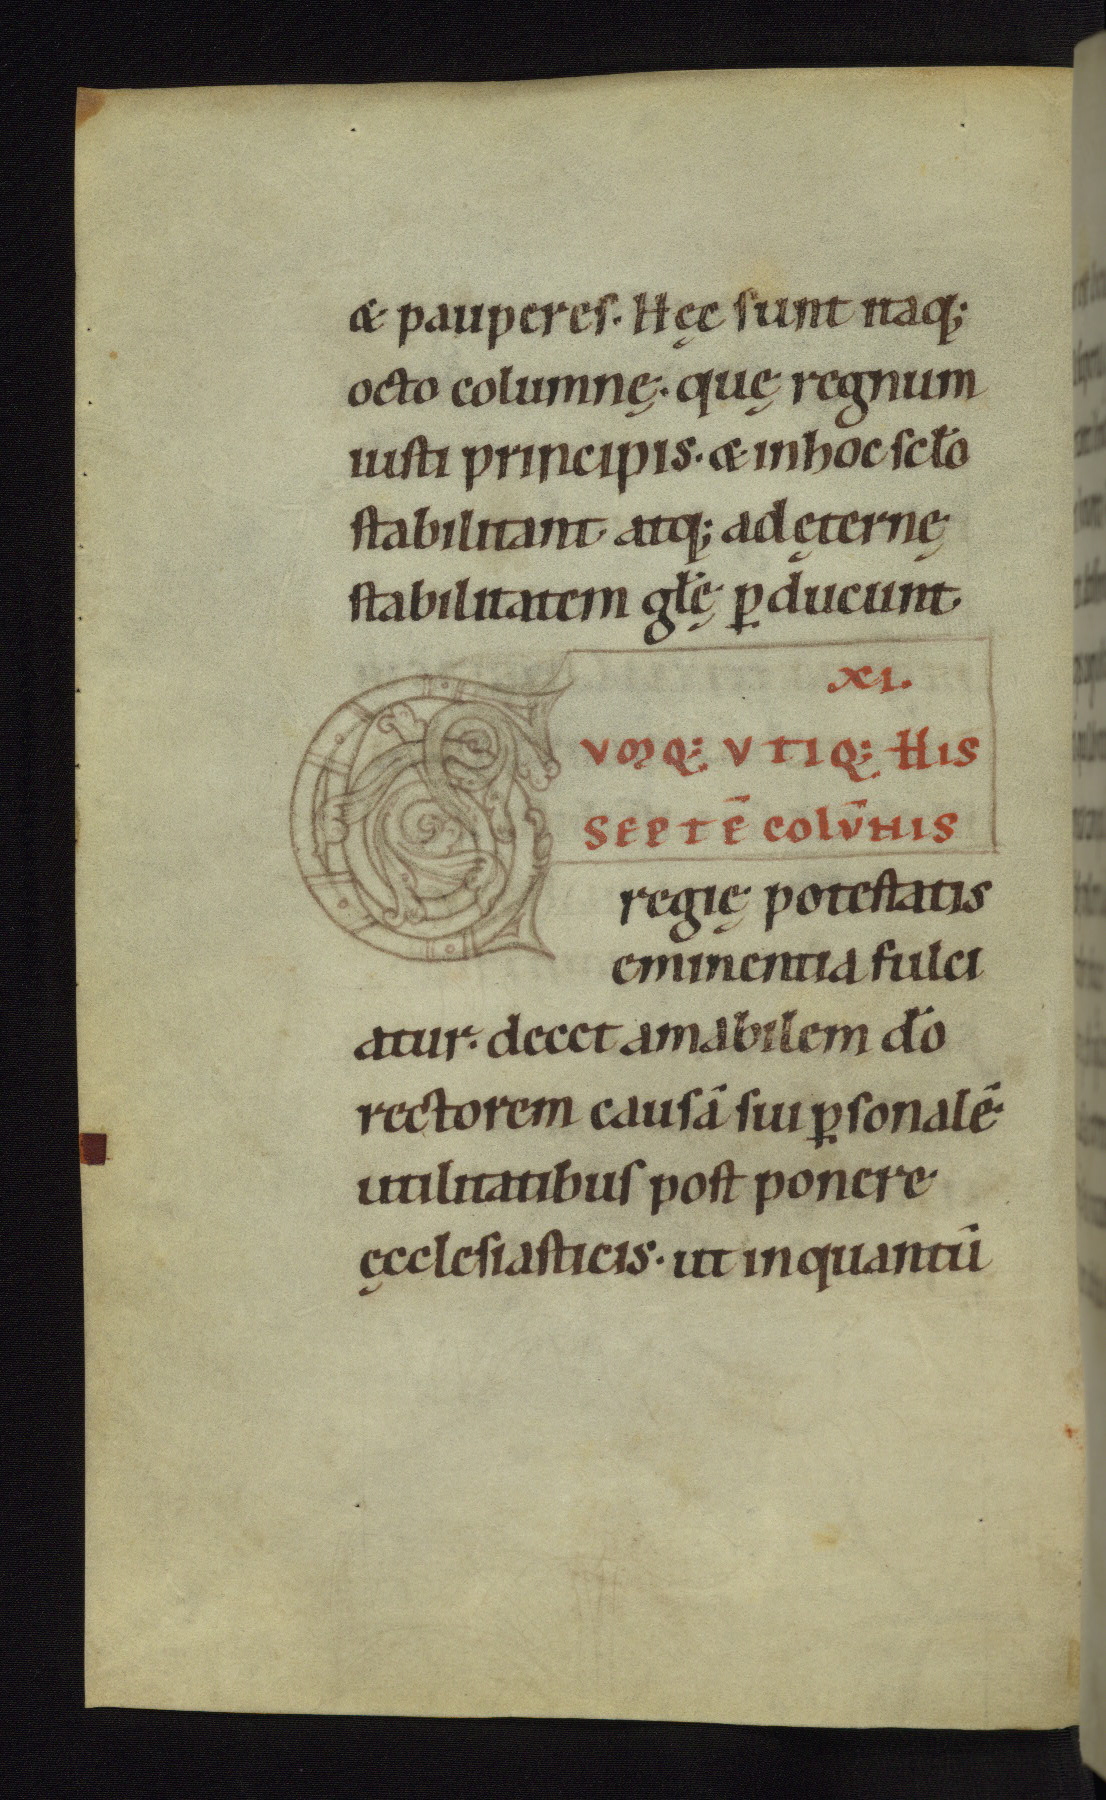 & pauperes. Hęę sunt itaq;
octo columnę. quę regnum
iusti principis. & in hoc sclo̅
stabilitant atq; ad ęternę
stabilitatem gl̅ę p̲ducunt
XI.
CVMQ; VTIQ; HIS
SEPTE̅ COLV̅NIS
regię potestatis
eminentia fulci
atur. decet amabilem do̅
rectorem causa̅ sui p̲sonale̅
utilitatibus post ponere
ęcclesiasticis. ut in quantu̅